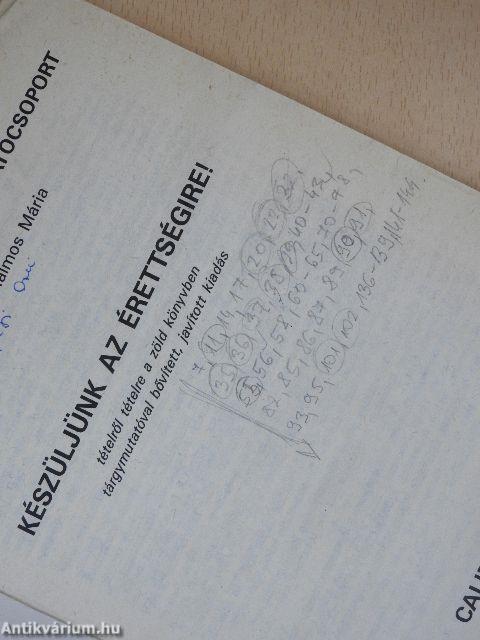 TÓCSOPORT
almos Mária
KÉSZÜLJÜNK AZ ÉRETTSÉGIRE!
tételről tételre a zöld könyvben
tárgymutatóval bővített, javított kiadás
7, 11, 14, 17, 20, 22, 
35, 36, 37, 38, 39, 40-43,
55, 56, 57, 60, 65, 70-78,
82, 85, 86, 87, 89, 90, 91,
93, 95, 101, 102, 136-139, 141-144.
CALI
Antikvárium.hu